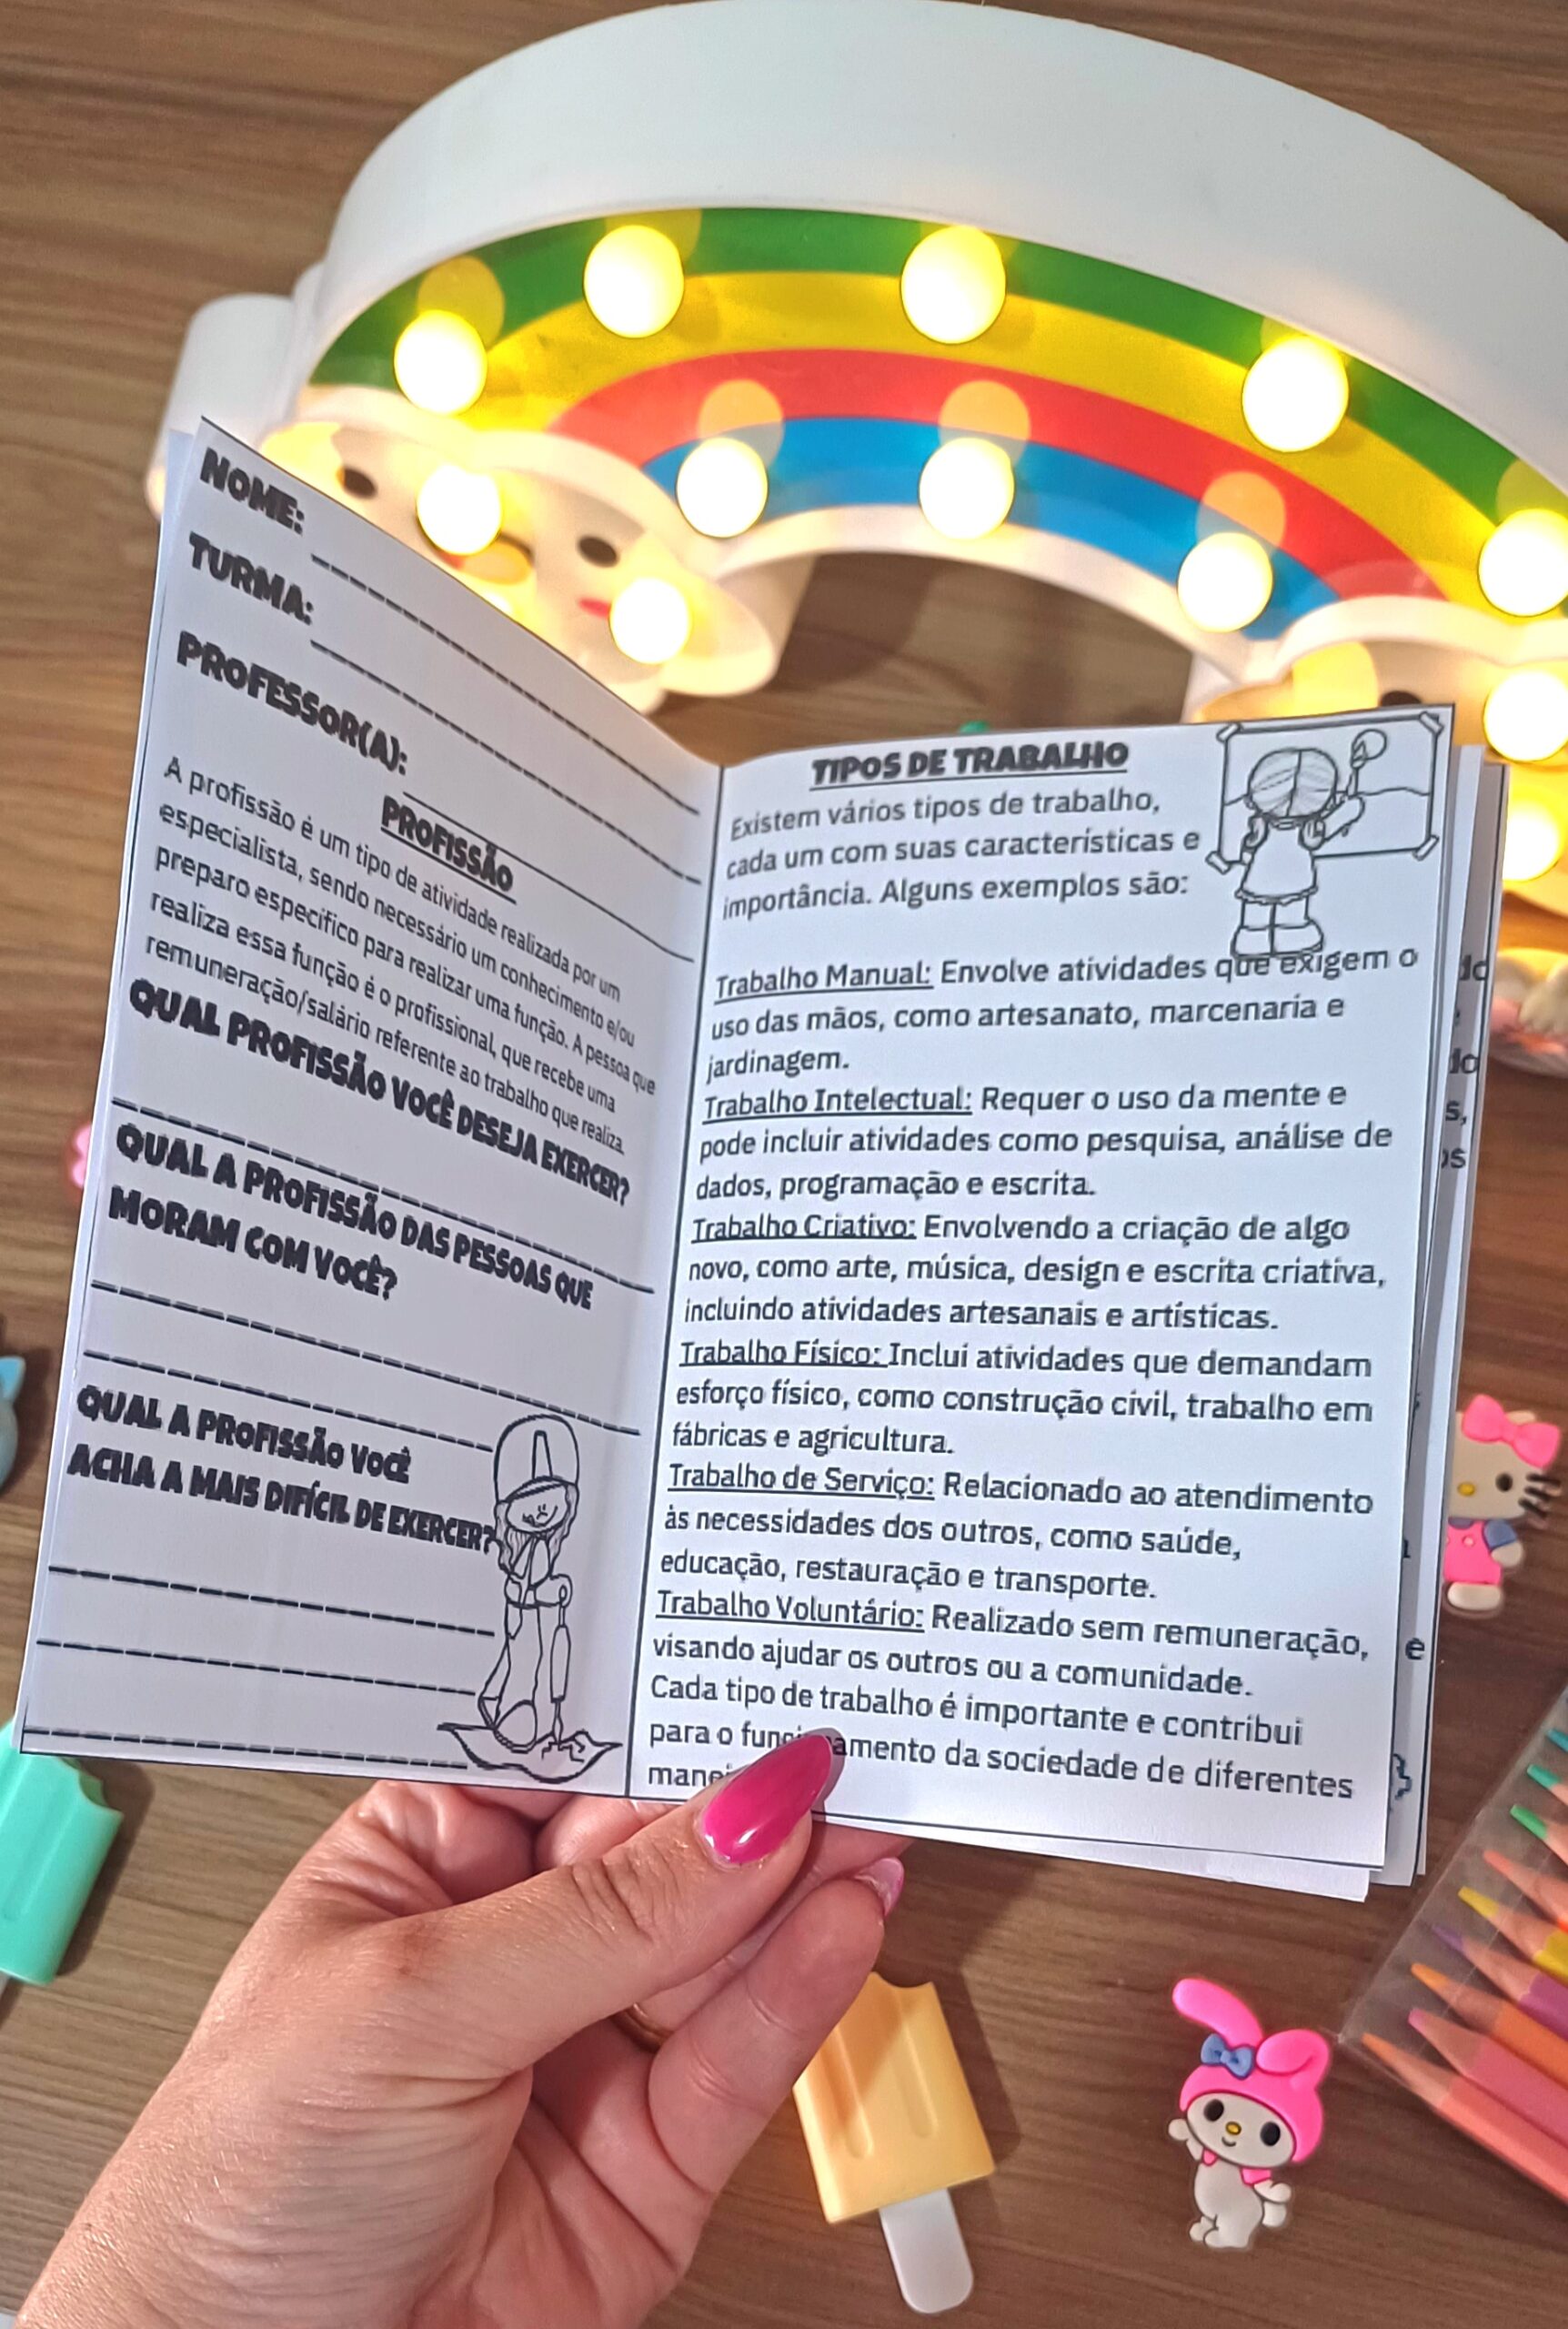 NOME:
TURMA:
PROFESSOR(A):
PROFISSÃO
A profissão é um tipo de atividade realizada por um
especialista, sendo necessário um conhecimento e/ou
preparo específico para realizar uma função. A pessoa que
realiza essa função é o profissional, que recebe uma
remuneração/salário referente ao trabalho que realiza.
QUAL PROFISSÃO VOCÊ DESEJA EXERCER?
QUAL A PROFISSÃO DAS PESSOAS QUE
MORAM COM VOCÊ?
QUAL A PROFISSÃO VOCÊ
ACHA A MAIS DIFÍCIL DE EXERCER?
TIPOS DE TRABALHO
Existem vários tipos de trabalho,
cada um com suas características e
importância. Alguns exemplos são:
Trabalho Manual: Envolve atividades que exigem o
uso das mãos, como artesanato, marcenaria e
jardinagem.
Trabalho Intelectual: Requer o uso da mente e
pode incluir atividades como pesquisa, análise de
dados, programação e escrita.
Trabalho Criativo: Envolvendo a criação de algo
novo, como arte, música, design e escrita criativa,
incluindo atividades artesanais e artísticas.
Trabalho Físico: Inclui atividades que demandam
esforço físico, como construção civil, trabalho em
fábricas e agricultura.
Trabalho de Serviço: Relacionado ao atendimento
às necessidades dos outros, como saúde,
educação, restauração e transporte.
Trabalho Voluntário: Realizado sem remuneração,
visando ajudar os outros ou a comunidade.
Cada tipo de trabalho é importante e contribui
para o funcionamento da sociedade de diferentes